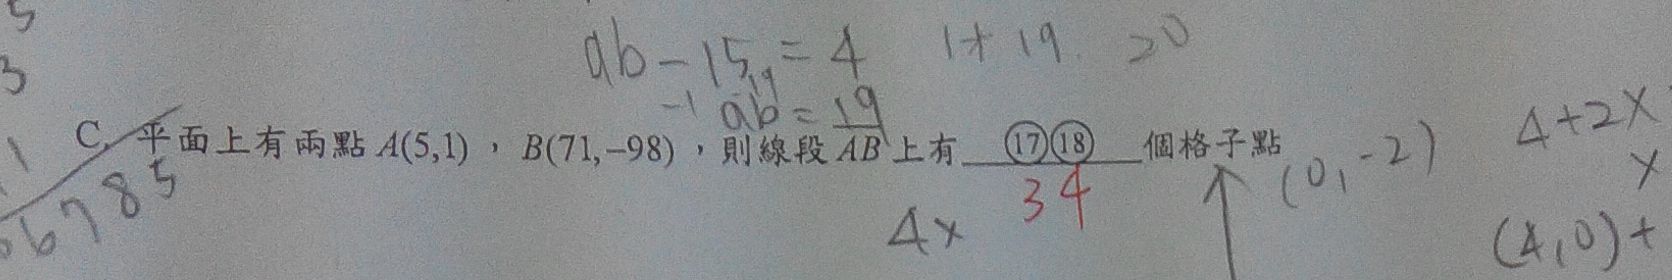 5
3
ab - 15 = 4 1 + 19 > 0
19
-1 ab = 19
C. 平面上有兩點A(5,1)，B(71,-98)，則線段AB上有 ⑰⑱ 個格子點
34
(0,-2)
4+2x
x
1
6785
4x
(4,0)+